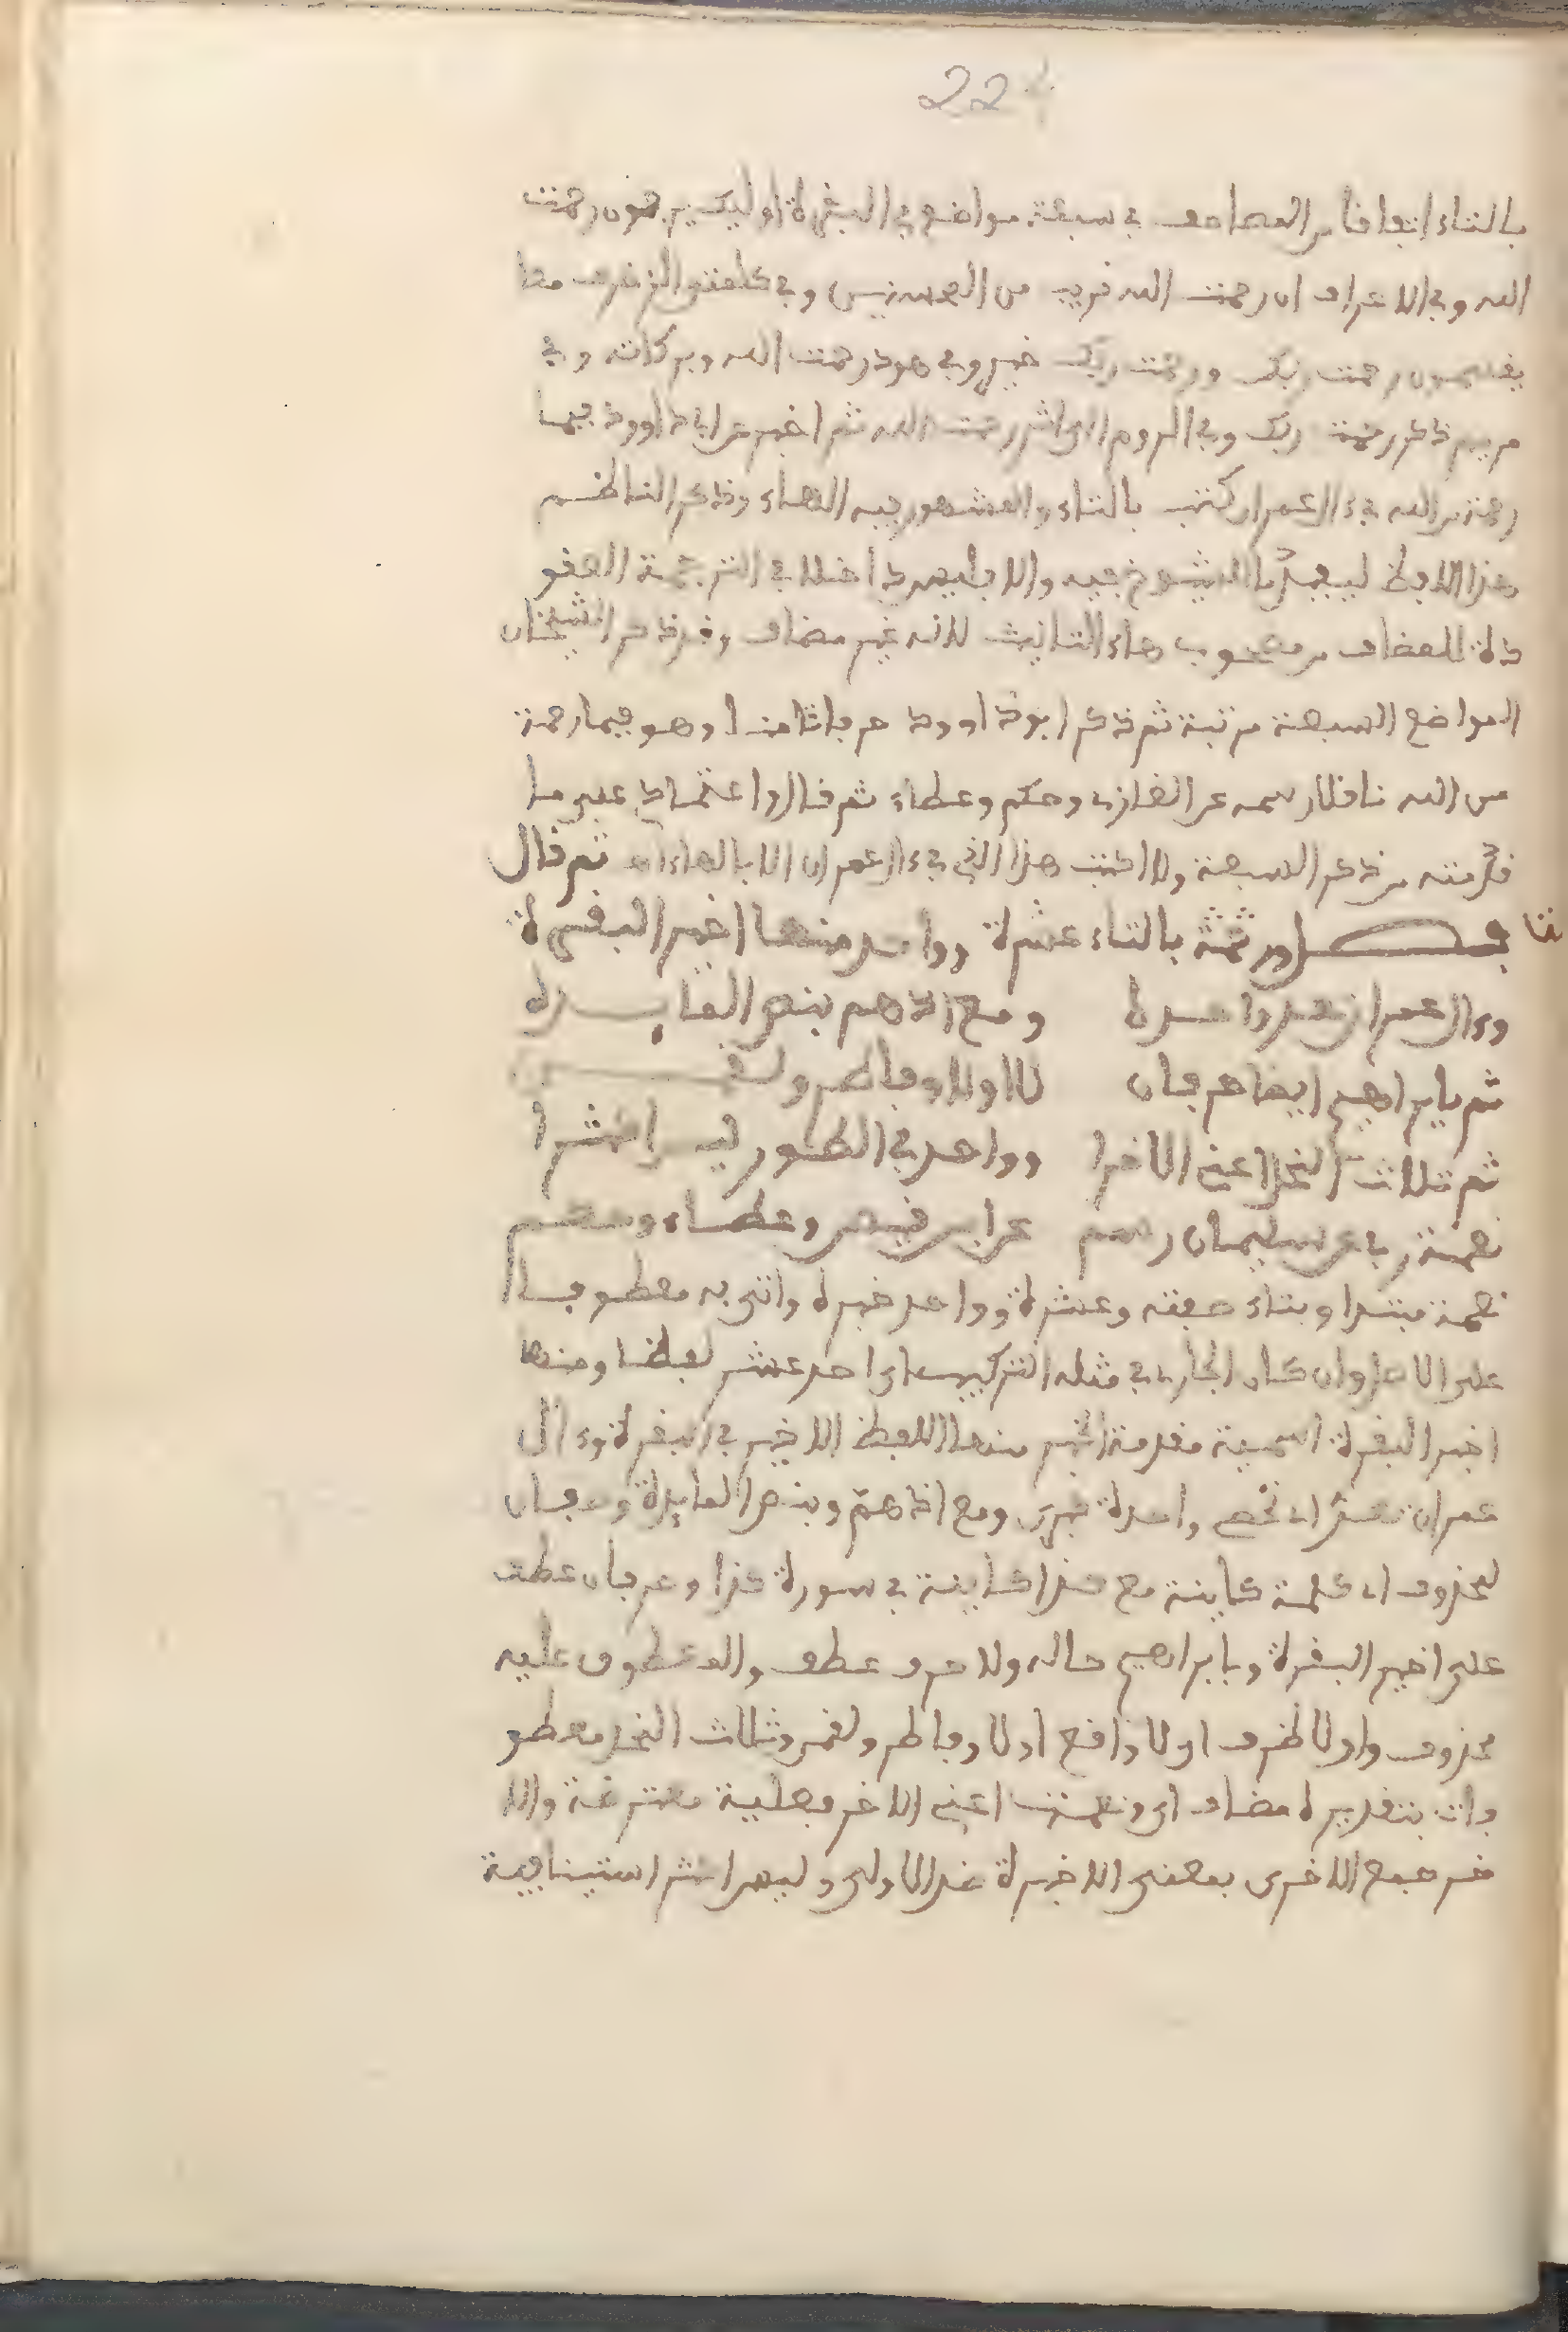 224
بالتاء اتفاقا من المصاحف في سبعة مواضع في البقرة اوليك يرجون رحمت
الله وفي الاعراف ان رحمت الله قريب من المحسنين وفي كلمتي الزخرف معا
يقسمون رحمت ربك ورحمت ربك خير وفي هود رحمت الله وبركاته وفي
مريم ذكر رحمت ربك وفي الروم الى اثر رحمت الله ثم اخبر عن ابي داوود فبما
رحمة من الله في ال عمران كتب بالتاء والمشهور فيه الهاء وذكر الناظم
هذا اللفظ ليفيد ما الشيوخ فيه والا فليس داخلا في الترجمة المعقو
دة للمضاف من مصحوب هاء التانيث لانه غير مضاف وقد ذكر الشيخان
المواضع السبعة مرتبة ثم ذكر ابو داوود حرفا ثامنا وهو فبما رحمة
من الله ناقلا رسمه عن الغازي وحكم وعطاء ثم قال واعتمادي على ما
قدمته من ذكر السبعة ولا اكتب هذا الذي في ال عمران الا بالهاء اه ثم قال
فصل ونعمة بالتاء عشرة وواحد منها اخير البقرة
وال عمران تعد واحدة ومع اذ هم بنص المايدة
ثم بابراهيم ايضا حرفان لا اولا وفاطر ولقمان
ثم ثلاث النحل اعني الاخرا وواحد في الطور ليس اكثرا
نعمة ربي عن سليمان رسم عن ابن قيس وعطاء وحكم
نعمة مبتدا وبتاء صفته وعشرة وواحد خبره واتى به معطوفا
على الاصل وان كان الجاري في مثله التركيب اي احد عشر لفظا ومنها
اخير البقرة اسمية مقدمة الخبر منها اللفظ الاخير في البقرة وال
عمران تعد اي تحصى واحدة خبرى ومع اذ هم وبنص المايدة وحرفان
لمحذوف اي كلمة كاينة مع هذا كاينة في سورة كذا وحرفان عطف
على اخير البقرة وبابراهيم حاله ولا حرف عطف والمعطوف عليه
محذوف واولا ظرف اي لا واقع اولا وفاطر ولقمن وثلاث النحل معطو
فات بتقدير مضاف اي ونعمت اعني الاخر فعلية معترضة والا
خر جمع الاخرى بمعنى الاخيرة ضد الاولى وليس اكثر استينافية